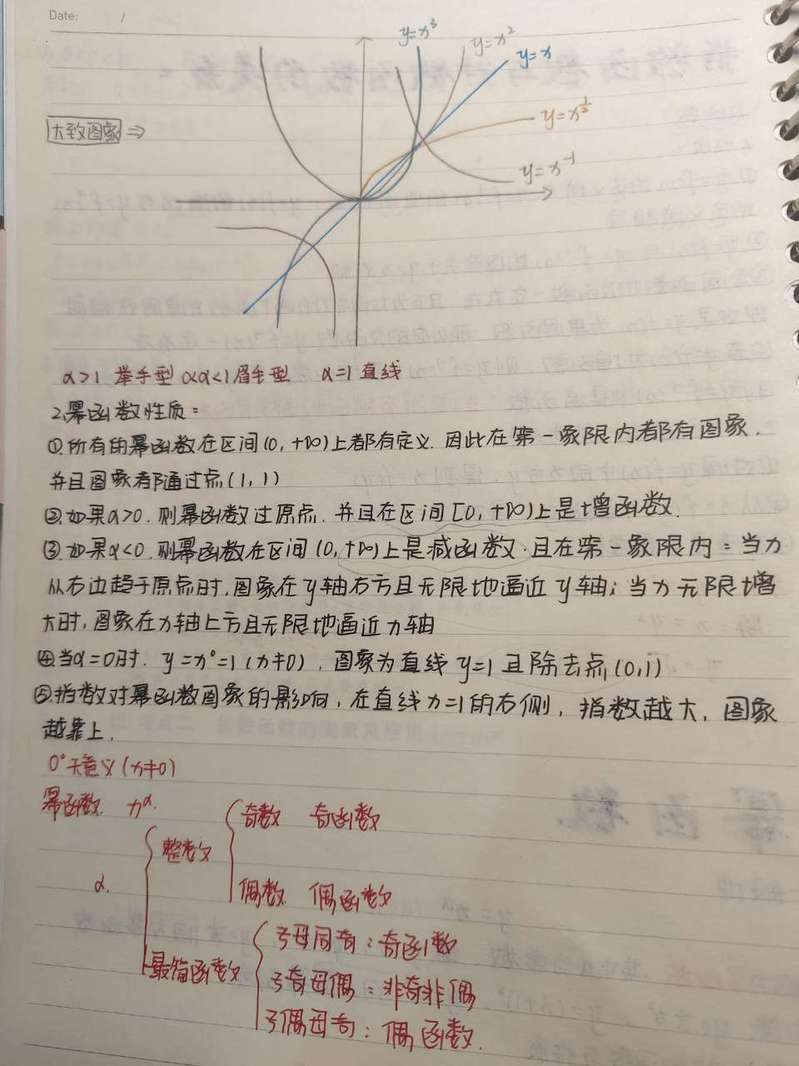 Date: /
y=x³
y=x²
y=x
大致图象 ⇒
y=x^{1/2}
y=x⁻¹
α>1 举手型 0<α<1眉毛型 α=1 直线
2.幂函数性质：
①所有的幂函数在区间(0,+∞)上都有定义.因此在第一象限内都有图象.
并且图象都通过点(1,1)
②如果α>0.则幂函数过原点.并且在区间[0,+∞)上是增函数.
③.如果α<0.则幂函数在区间(0,+∞)上是减函数.且在第一象限内：当x
从右边趋于原点时,图象在y轴右方且无限地逼近y轴；当x无限增
大时,图象在x轴上方且无限地逼近x轴
④当α=0时. y=x⁰=1(x≠0),图象为直线y=1且除去点(0,1)
⑤.指数对幂函数图象的影响,在直线x=1的右侧,指数越大,图象
越靠上.
0⁰无意义(x≠0)
幂函数 x^α.
奇数 奇函数
整数
α.
偶数 偶函数
子母同奇：奇函数
最简函数
子奇母偶：非奇非偶
子偶母奇：偶函数.